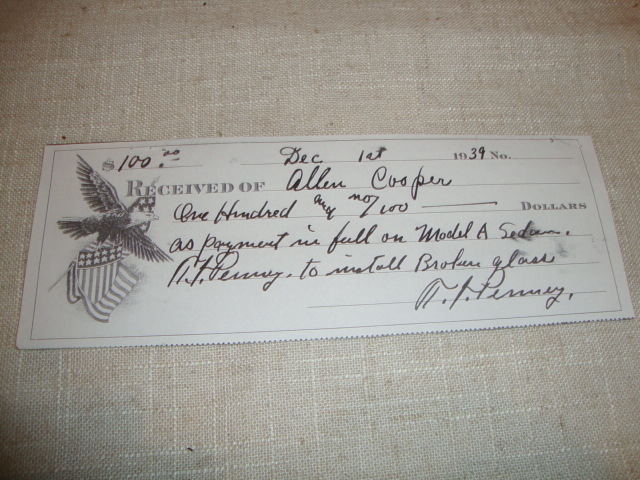 $ 100.00 Dec 1st 1939 No.
RECEIVED OF Allen Cooper
One Hundred and no/100 DOLLARS
as payment in full on Model A Sedan.
Penney. to install Broken glass
Penney.